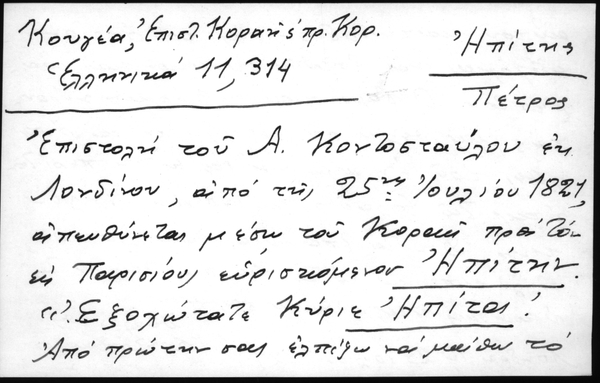 Κουγέα, Ἐπιστ. Κοραῆ & πρ. Κορ.
Ἑλληνικά 11, 314
Ἠπίτης
Πέτρος
Ἐπιστολή τοῦ Α. Κοντοσταύλου ἐκ
Λονδίνου, ἀπό τῆς 25ης Ἰουλίου 1821,
ἀπευθύνεται μέσω τοῦ Κοραῆ πρός τόν
εἰς Παρισίους εὑρισκόμενον Ἠπίτην.
"Ἐξοχώτατε Κύριε Ἠπίτα!
Ἀπό πρώτην σας ἐλπίζω νά μάθω τό